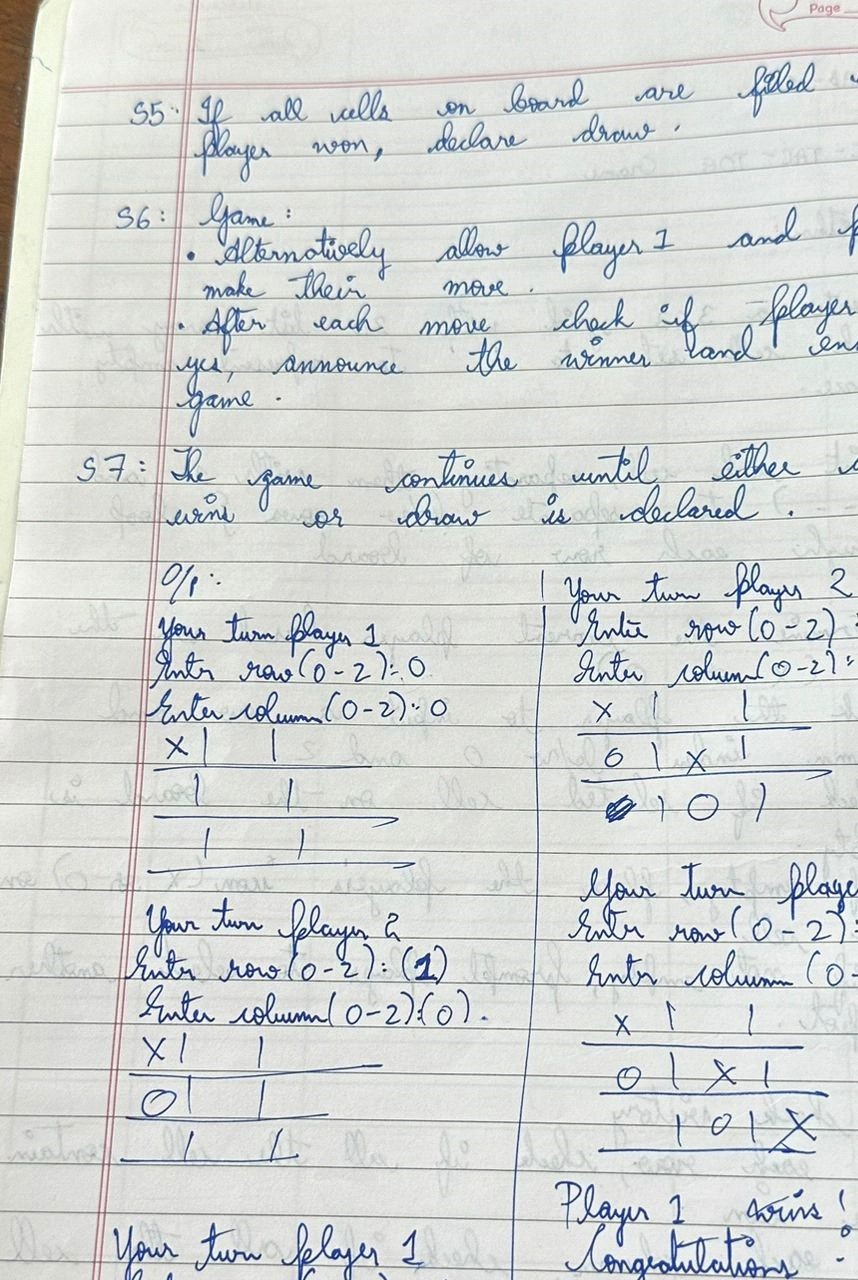 Page
S5: If all cells on board are filled
player won, declare draw.
S6: Game:
• Alternatively allow player 1 and
make their move.
• After each move check if player
yes, announce the winner and en
game.
S7: The game continues until either
wins or draw is declared.
O/p:
Your turn player 1
Enter row (0-2): 0
Enter column (0-2): 0
X | |
| |
| |
Your turn player 2
Enter row (0-2): (1)
Enter column (0-2): (0).
X | |
O | |
| |
Your turn player 1
Your turn player 2
Enter row (0-2):
Enter column (0-2):
X | |
O | X |
| O |
Your turn playe
Enter row (0-2):
Enter column (0-
X | |
O | X |
| O | X
Player 1 wins!
Congratulations